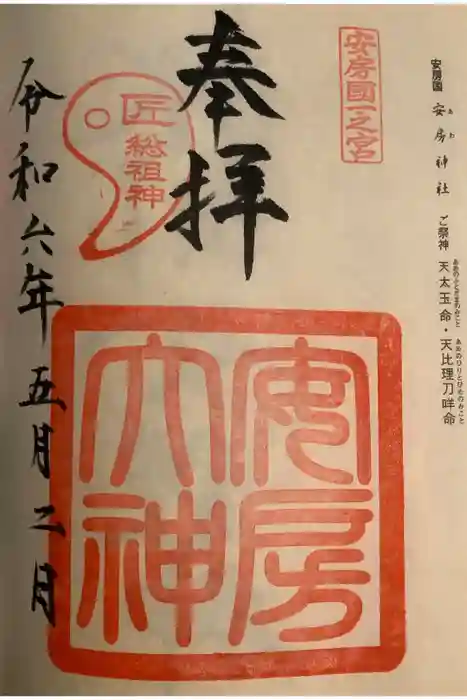 安房国 安房神社 ご祭神 天太玉命・天比理刀咩命
あわ
あめのふとだまのみこと
あめのひりとひめのみこと
安房國一之宮
奉拝
匠
総祖神
安房
大神
令和六年五月二日